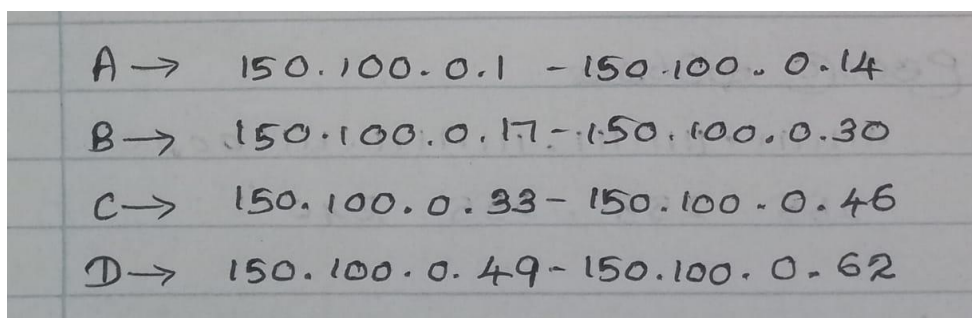 A → 150.100.0.1 - 150.100.0.14
B → 150.100.0.17 - 150.100.0.30
C → 150.100.0.33 - 150.100.0.46
D → 150.100.0.49 - 150.100.0.62